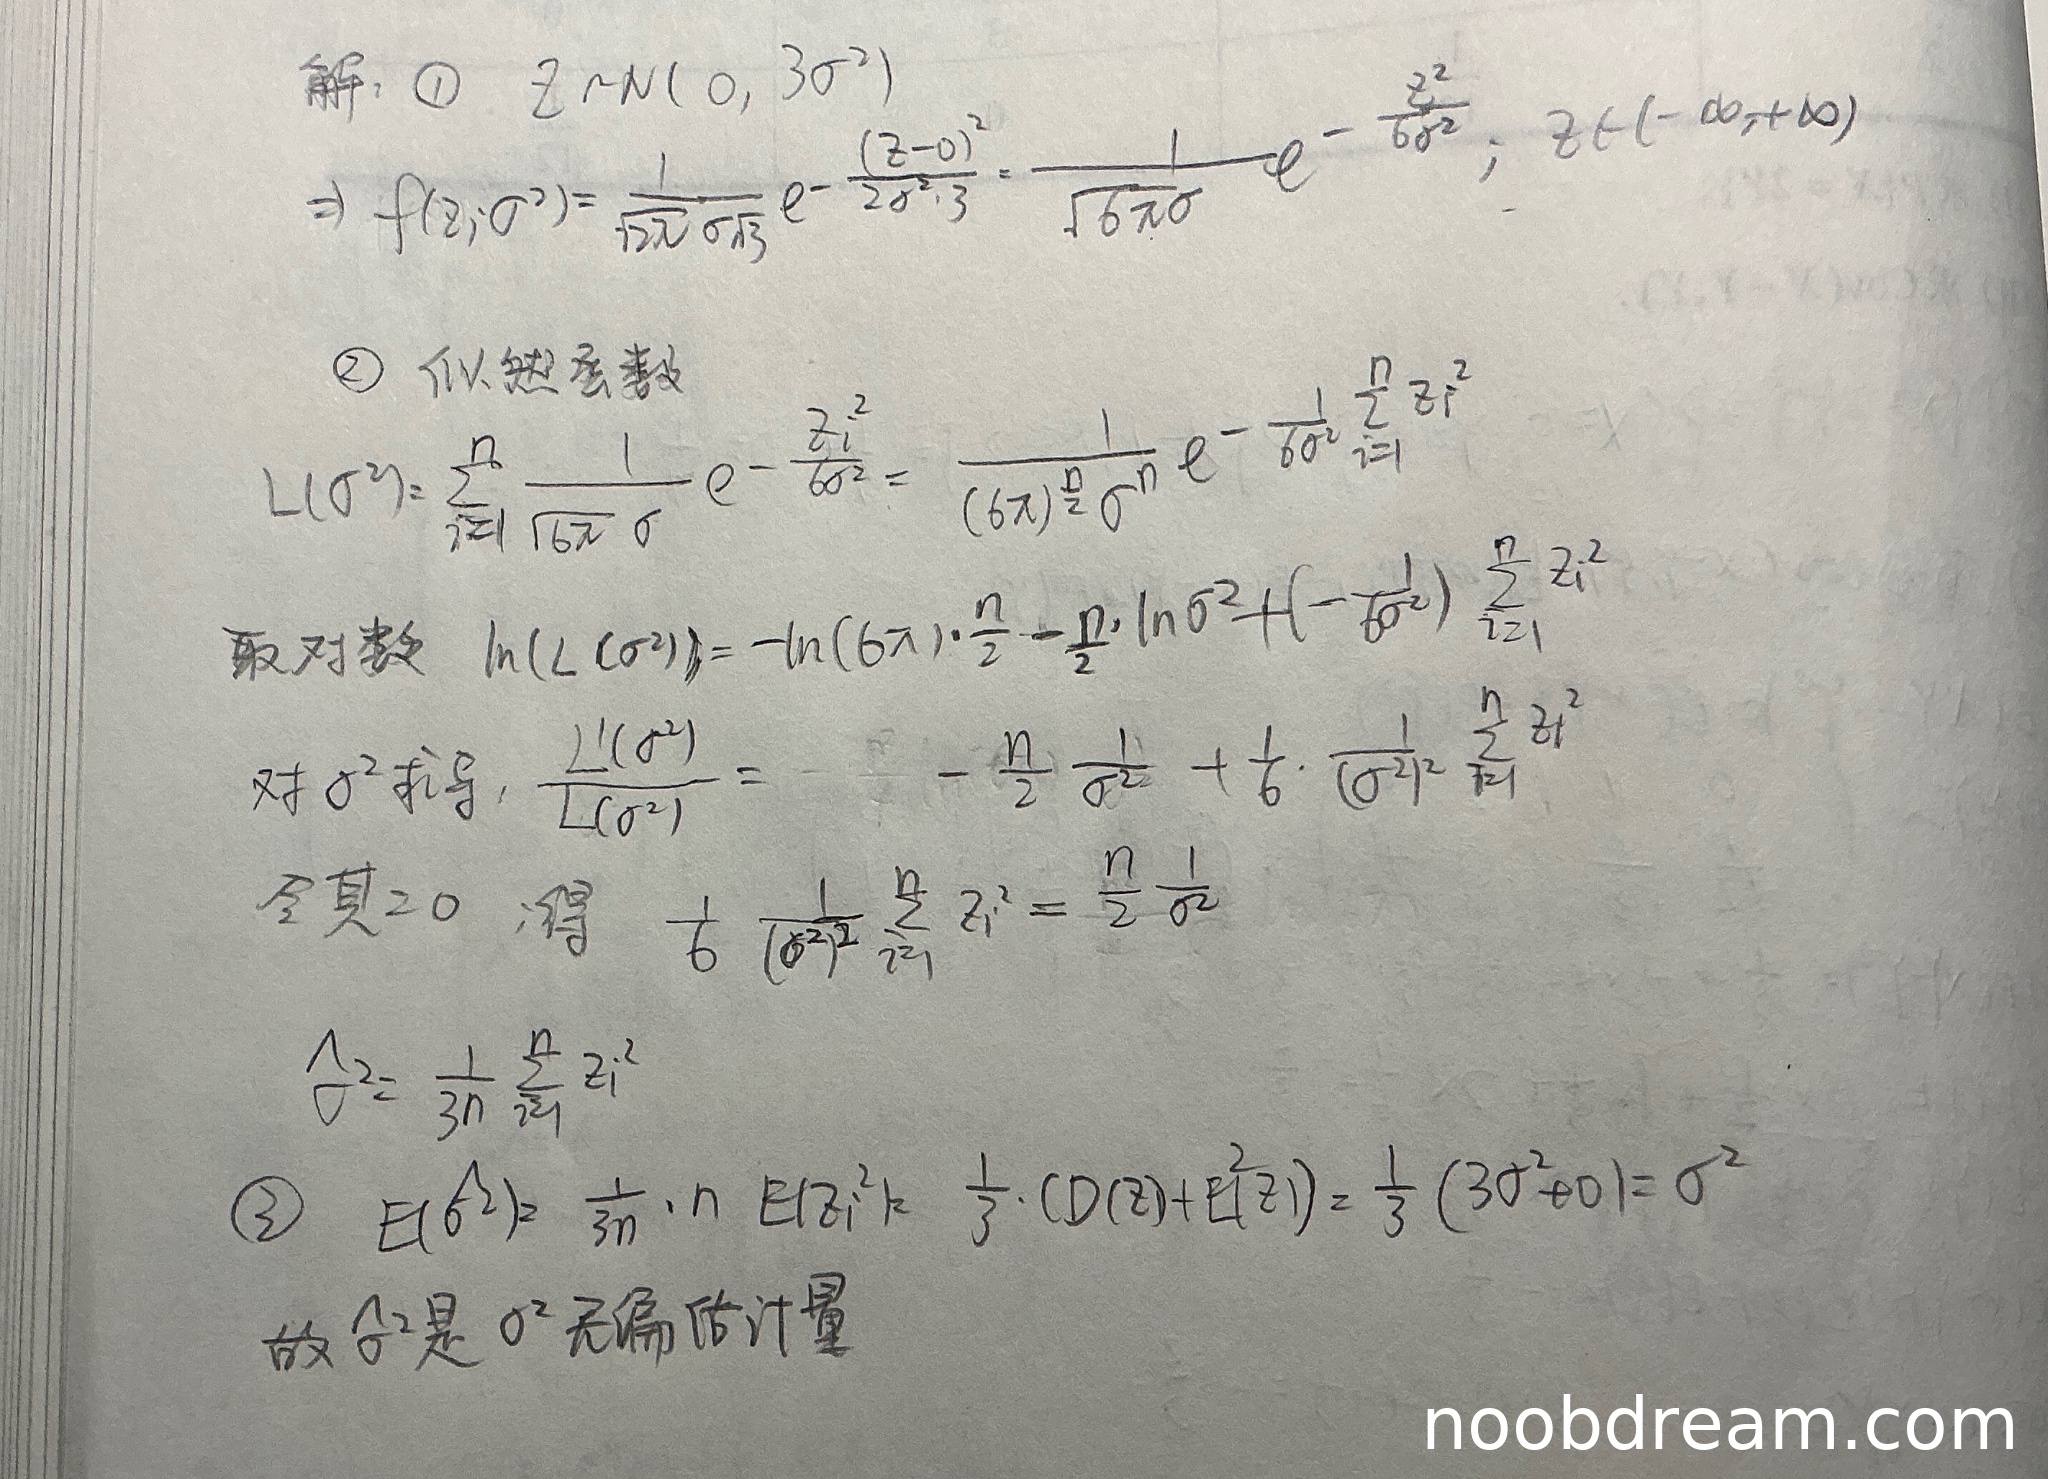 解: ① Z~N(0, 3σ²)
⇒ f(z;σ²)= 1/(√2π σ√3) e^{-(z-0)²/(2σ²·3)} = 1/(√6π σ) e^{-z²/(6σ²)}; z∈(-∞,+∞)
② 似然函数
L(σ²)= ∑_{i=1}^{n} 1/(√6π σ) e^{-Zi²/(6σ²)} = 1/((6π)^{n/2} σⁿ) e^{-1/(6σ²) ∑_{i=1}^{n} Zi²}
取对数 ln(L(σ²))= -ln(6π)·n/2 - n/2·lnσ²+(-1/(6σ²)) ∑_{i=1}^{n} Zi²
对σ²求导, L'(σ²)/L(σ²) = - n/2 1/σ² + 1/6 · 1/(σ²)² ∑_{i=1}^{n} Zi²
令其=0 ,得 1/6 1/(σ²)² ∑_{i=1}^{n} Zi² = n/2 1/σ²
σ̂²= 1/(3n) ∑_{i=1}^{n} Zi²
③ E(σ̂²)= 1/(3n)·n E(Zi²)= 1/3·(D(Z)+E²(Z))= 1/3 (3σ²+0)= σ²
故 σ̂²是 σ²无偏估计量
noobdream.com